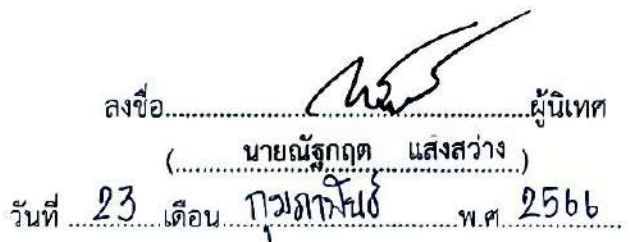 ลงชื่อ..................................................ผู้นิเทศ
(........นายณัฐกฤต แสงสว่าง..)
วันที่ ...23... เดือน ...กุมภาพันธ์... พ.ศ. 2566